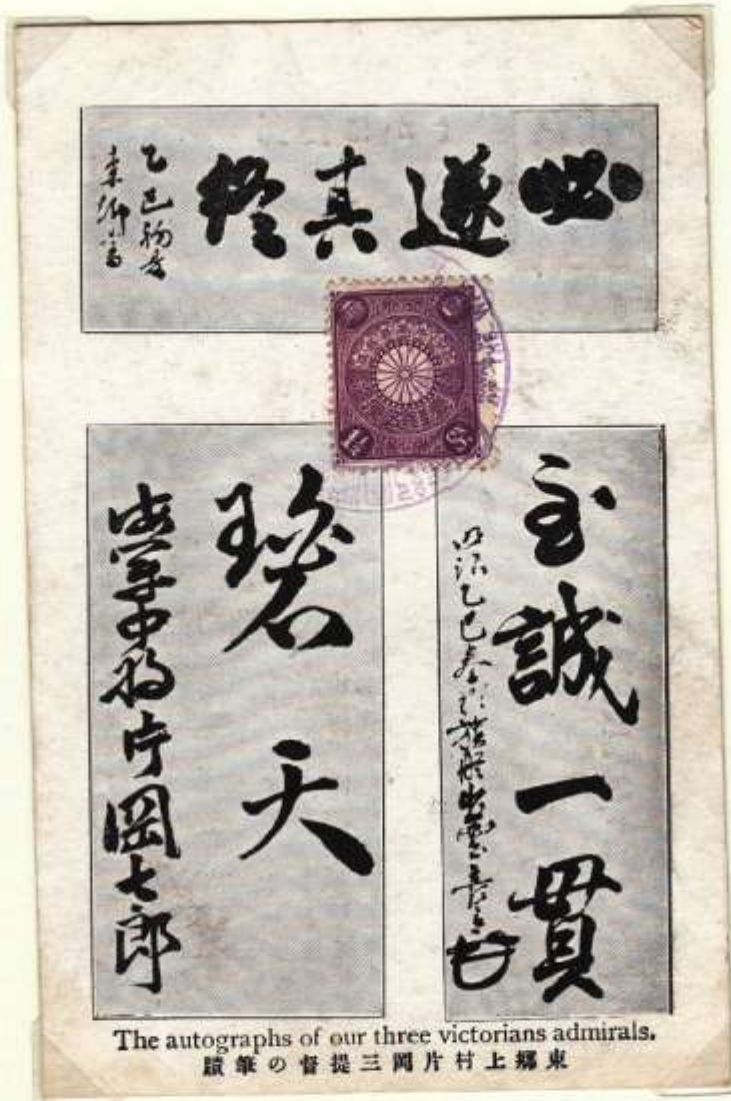 必遂其終
乙巳初春
東郷書
1½
Sⁿ
至誠一貫
明治乙巳春於旗艦出雲
碧天
海軍中将片岡七郎
The autographs of our three victorians admirals.
東鄉上村片岡三提督の筆蹟